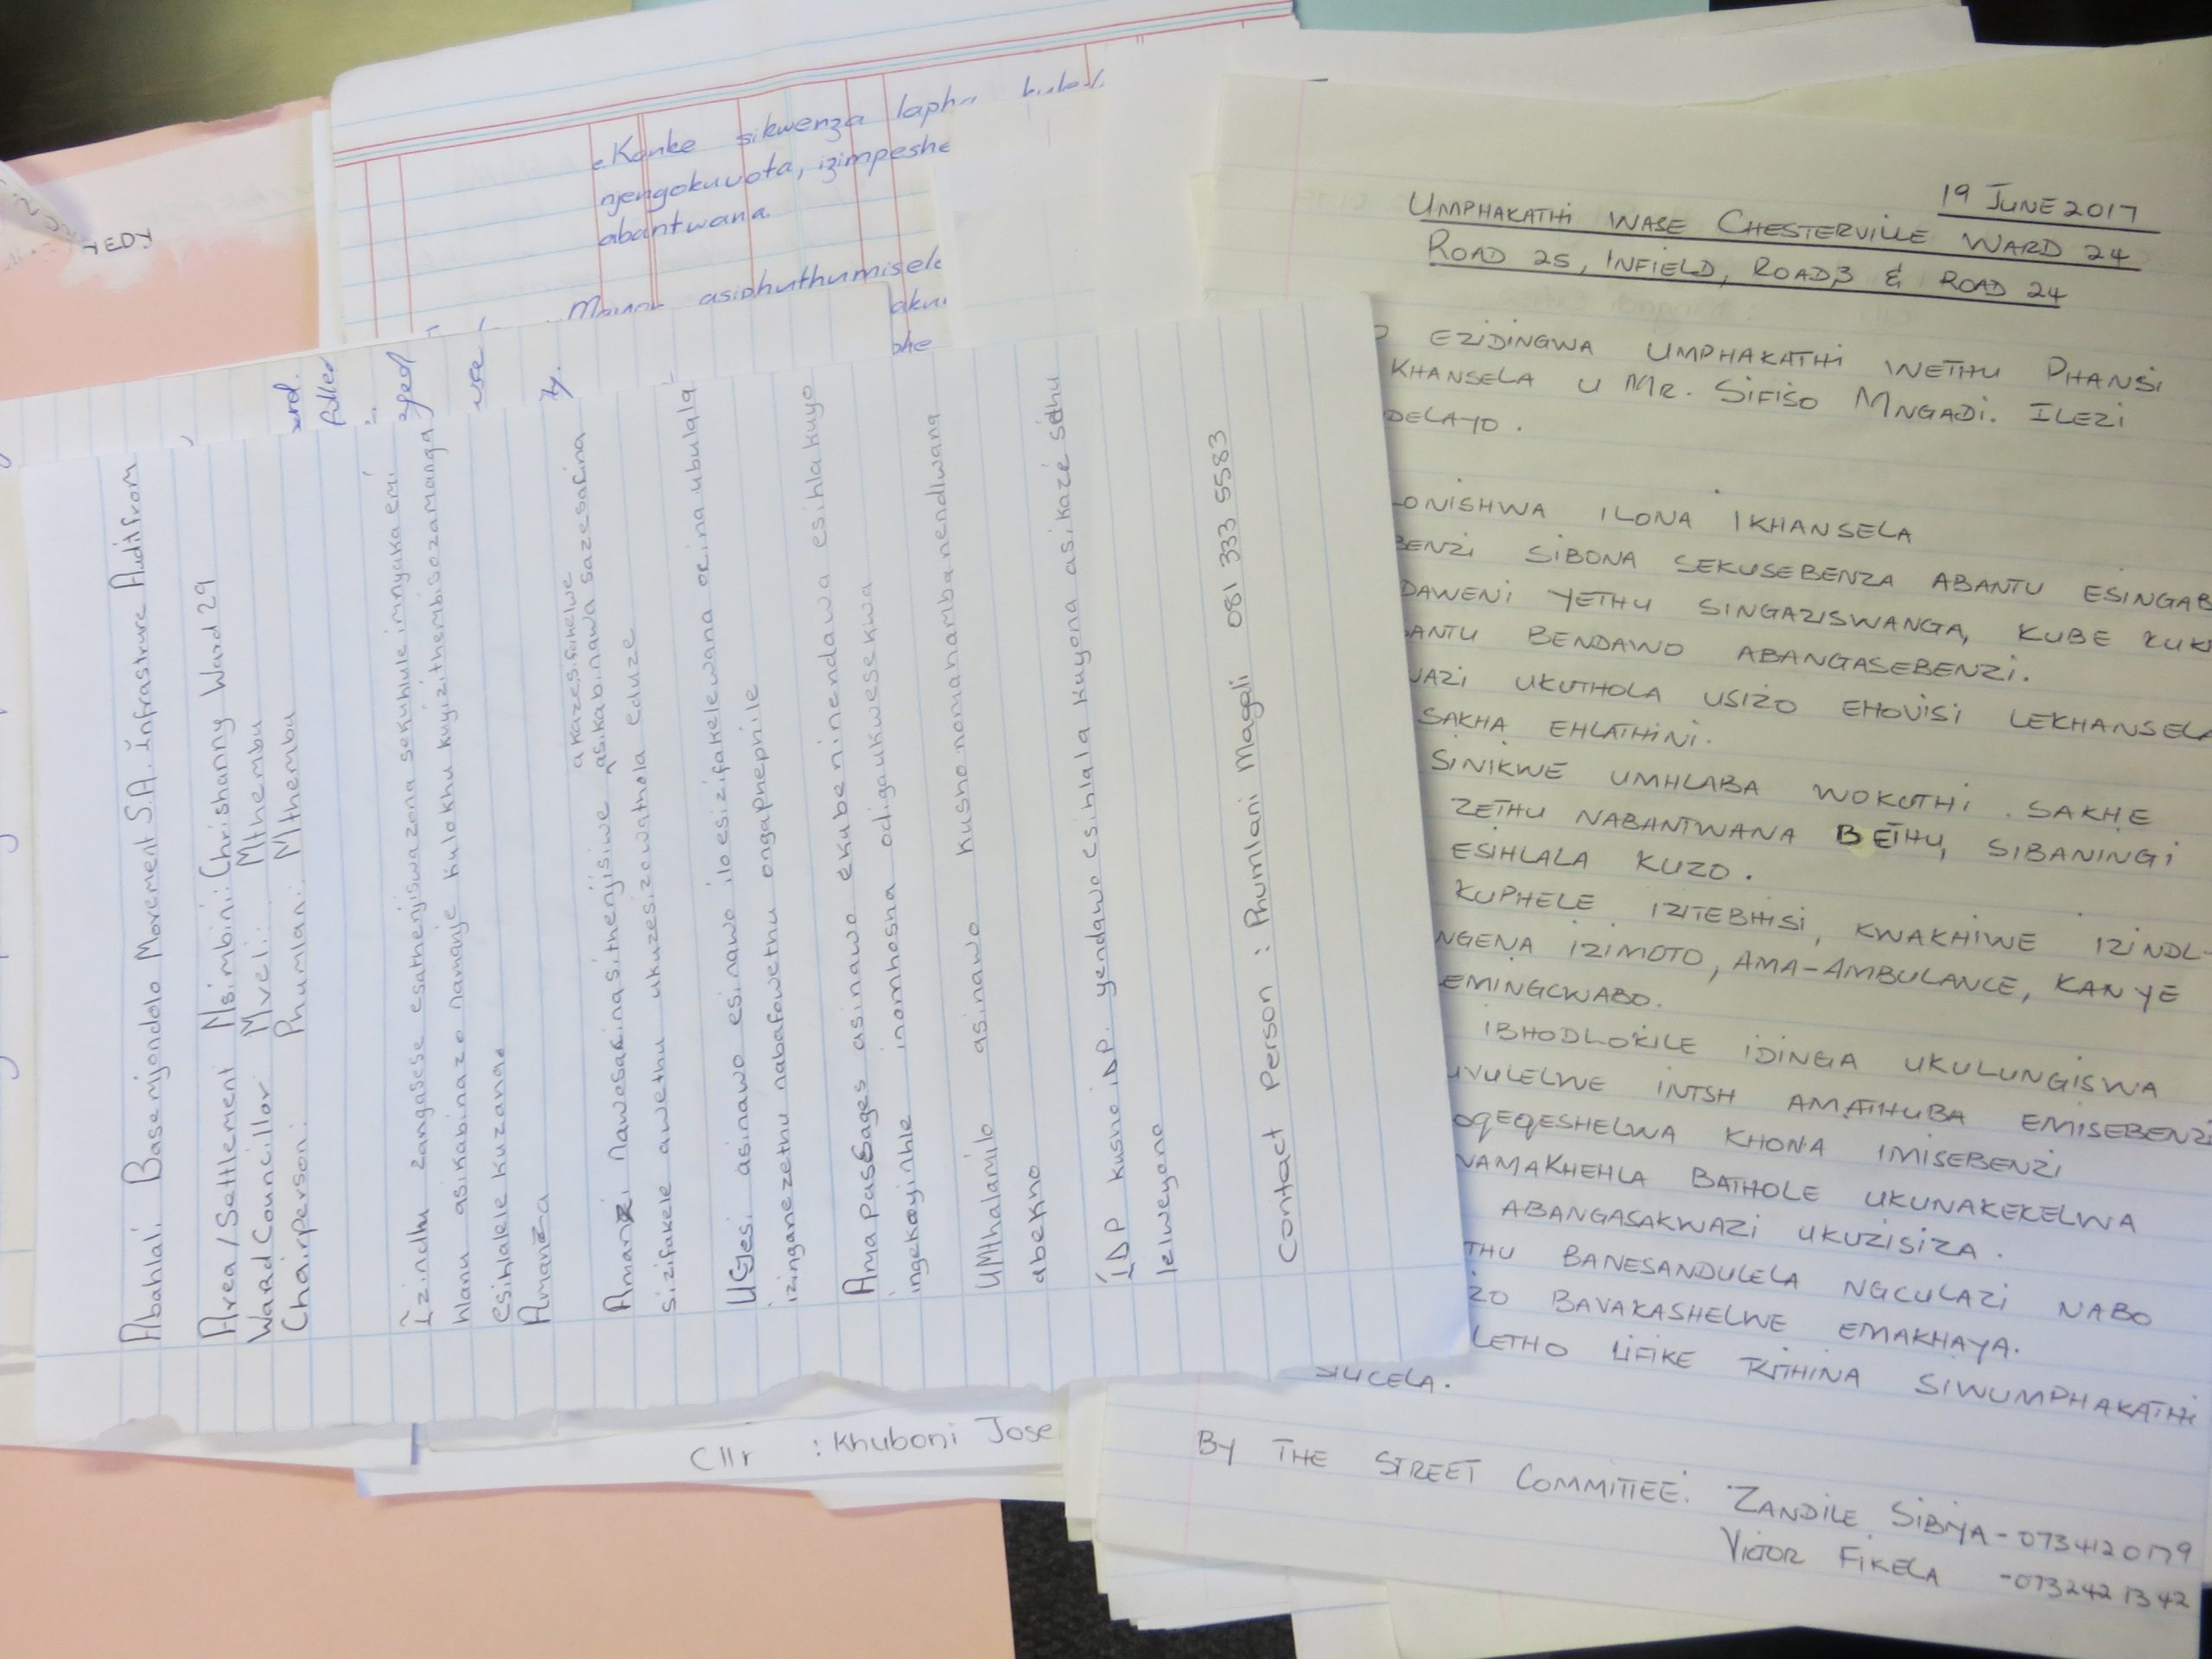 eKonke sikwenza
njengokuvota, izimpeshe
abantwana.
asiphuthumisele
aku
phe
KEDY
Abahlali Basemjondolo Movement S.A. Infrastrure Audit from
Area/Settlement Nsimbini: Chrishanny Ward 29
Ward Councillor: Mveli: Mthembu
Chairperson: Phumlani: Mthembu
Izindlu zangasese esathenjiswa zona sekuhule iminyaka emi
hlanu asikabinazo namanje kulokhu kuyizithembisozamanga
esihlalele kuzana.
Amanza
akazesifakelwe
Amanzi nawosarinasithenjisiwe asikabinawa sazesarina
sizifakele awethu ukuzesizowathola eduze
UGesi asinawo esinawo iloesizifakelewana orinaubulala
izinganezethu nabafowethu ongaphephile
Amapassages asinawo ekubeninendawa esihlakuyo
ingekayinhle inomhosha odigaukwesekwa
UMthalamilo asinawo kushonomahambanendlwana
abekho
IDP kusho iDP. yendawo esihlala kuyona asikaze sidhu
lelweyano
Contact Person : Phumlani Magali 081 333 5583
Cllr : Khuboni Jose
19 JUNE 2017
UMPHAKATHI WASE CHESTERVILLE WARD 24
ROAD 25, INFIELD, ROAD 3 & ROAD 24
EZIDINGWA UMPHAKATHI WETHU PHANSI
KHANSELA U MR. SIFISO MNGADI. ILEZI
DELAYO.
ONISHWA ILONA IKHANSELA
BENZI SIBONA SEKUSEBENZA ABANTU ESINGAB
DAWENI YETHU SINGAZISWANGA, KUBE KUK
ANTU BENDAWO ABANGASEBENZI.
WAZI UKUTHOLA USIZO EHOVISI LEKHANSELA
SAKHA EHLATHINI.
SINIKWE UMHLABA WOKUTHI. SAKHE
ZETHU NABANTWANA BETHU, SIBANINGI
ESIHLALA KUZO.
KUPHELE IZITEBHISI, KWAKHIWE IZINDL-
NGENA IZIMOTO, AMA-AMBULANCE, KANYE
EMINGCWABO.
IBHODLOKILE IDINGA UKULUNGISWA
UVULELWE INTSH AMATHUBA EMISEBENZI
OQEQESHELWA KHONA IMISEBENZI
NAMAKHEHLA BATHOLE UKUNAKEKELWA
ABANGASAKWAZI UKUZISIZA.
THU BANESANDULELA NGCULAZI NABO
ZO BAVAKASHELWE EMAKHAYA.
LETHO LIFIKE KITHINA SIWUMPHAKATHI
SIUCELA.
BY THE STREET COMMITTEE: ZANDILE SIBIYA - 0734120179
VICTOR FIKELA - 0732421342